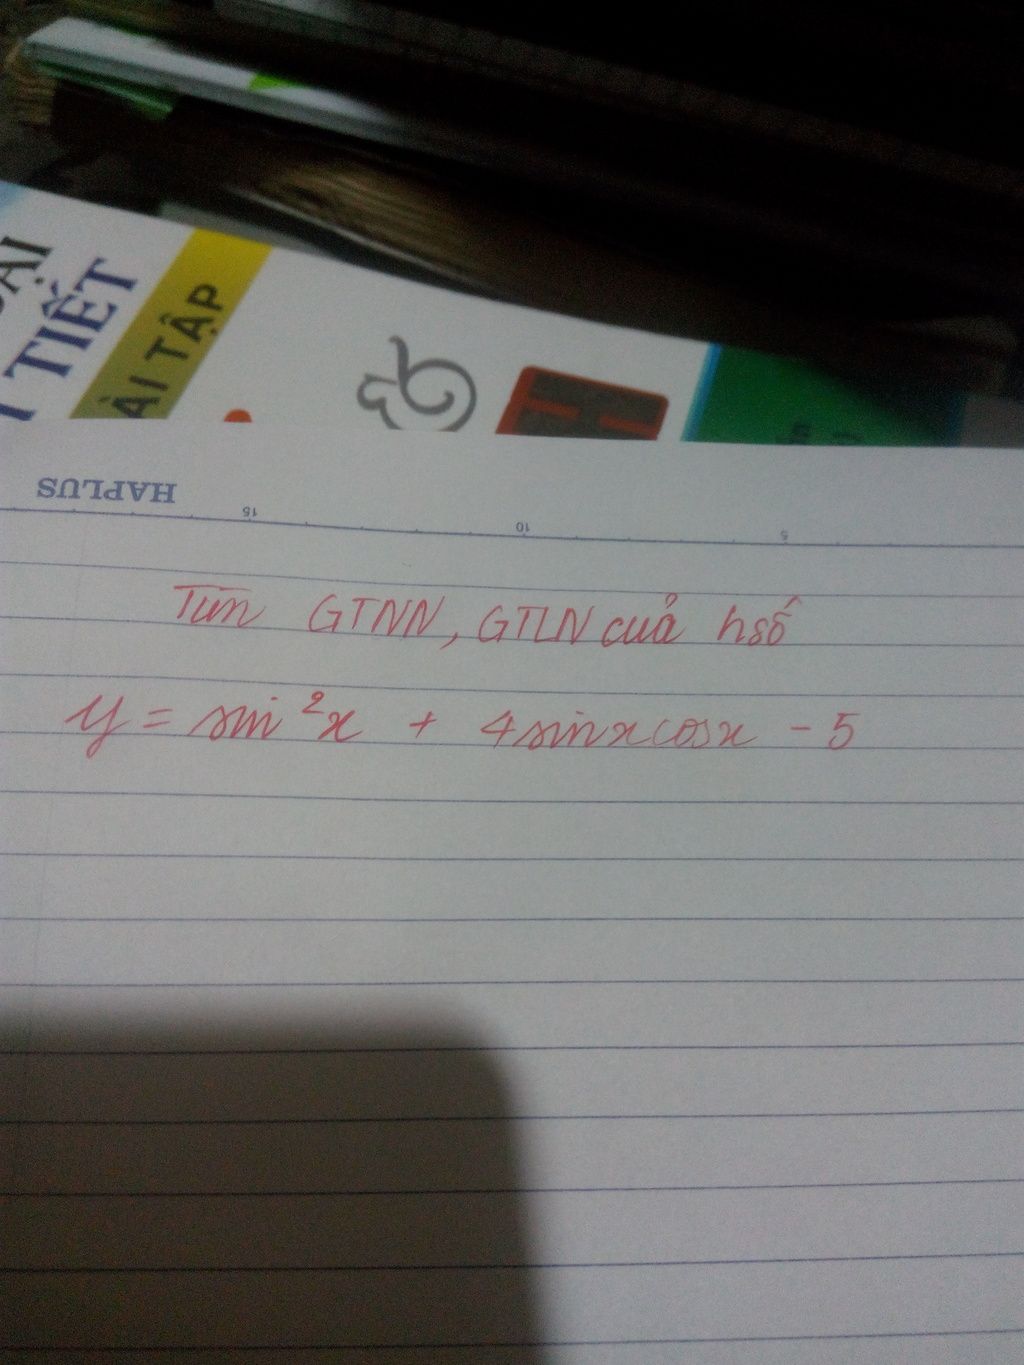 ẠI
TIẾT
ÀI TẬP
HAPLUS
15 10 5
Tìm GTNN, GTLN của hsố
y = sin²x + 4sinxcosx - 5